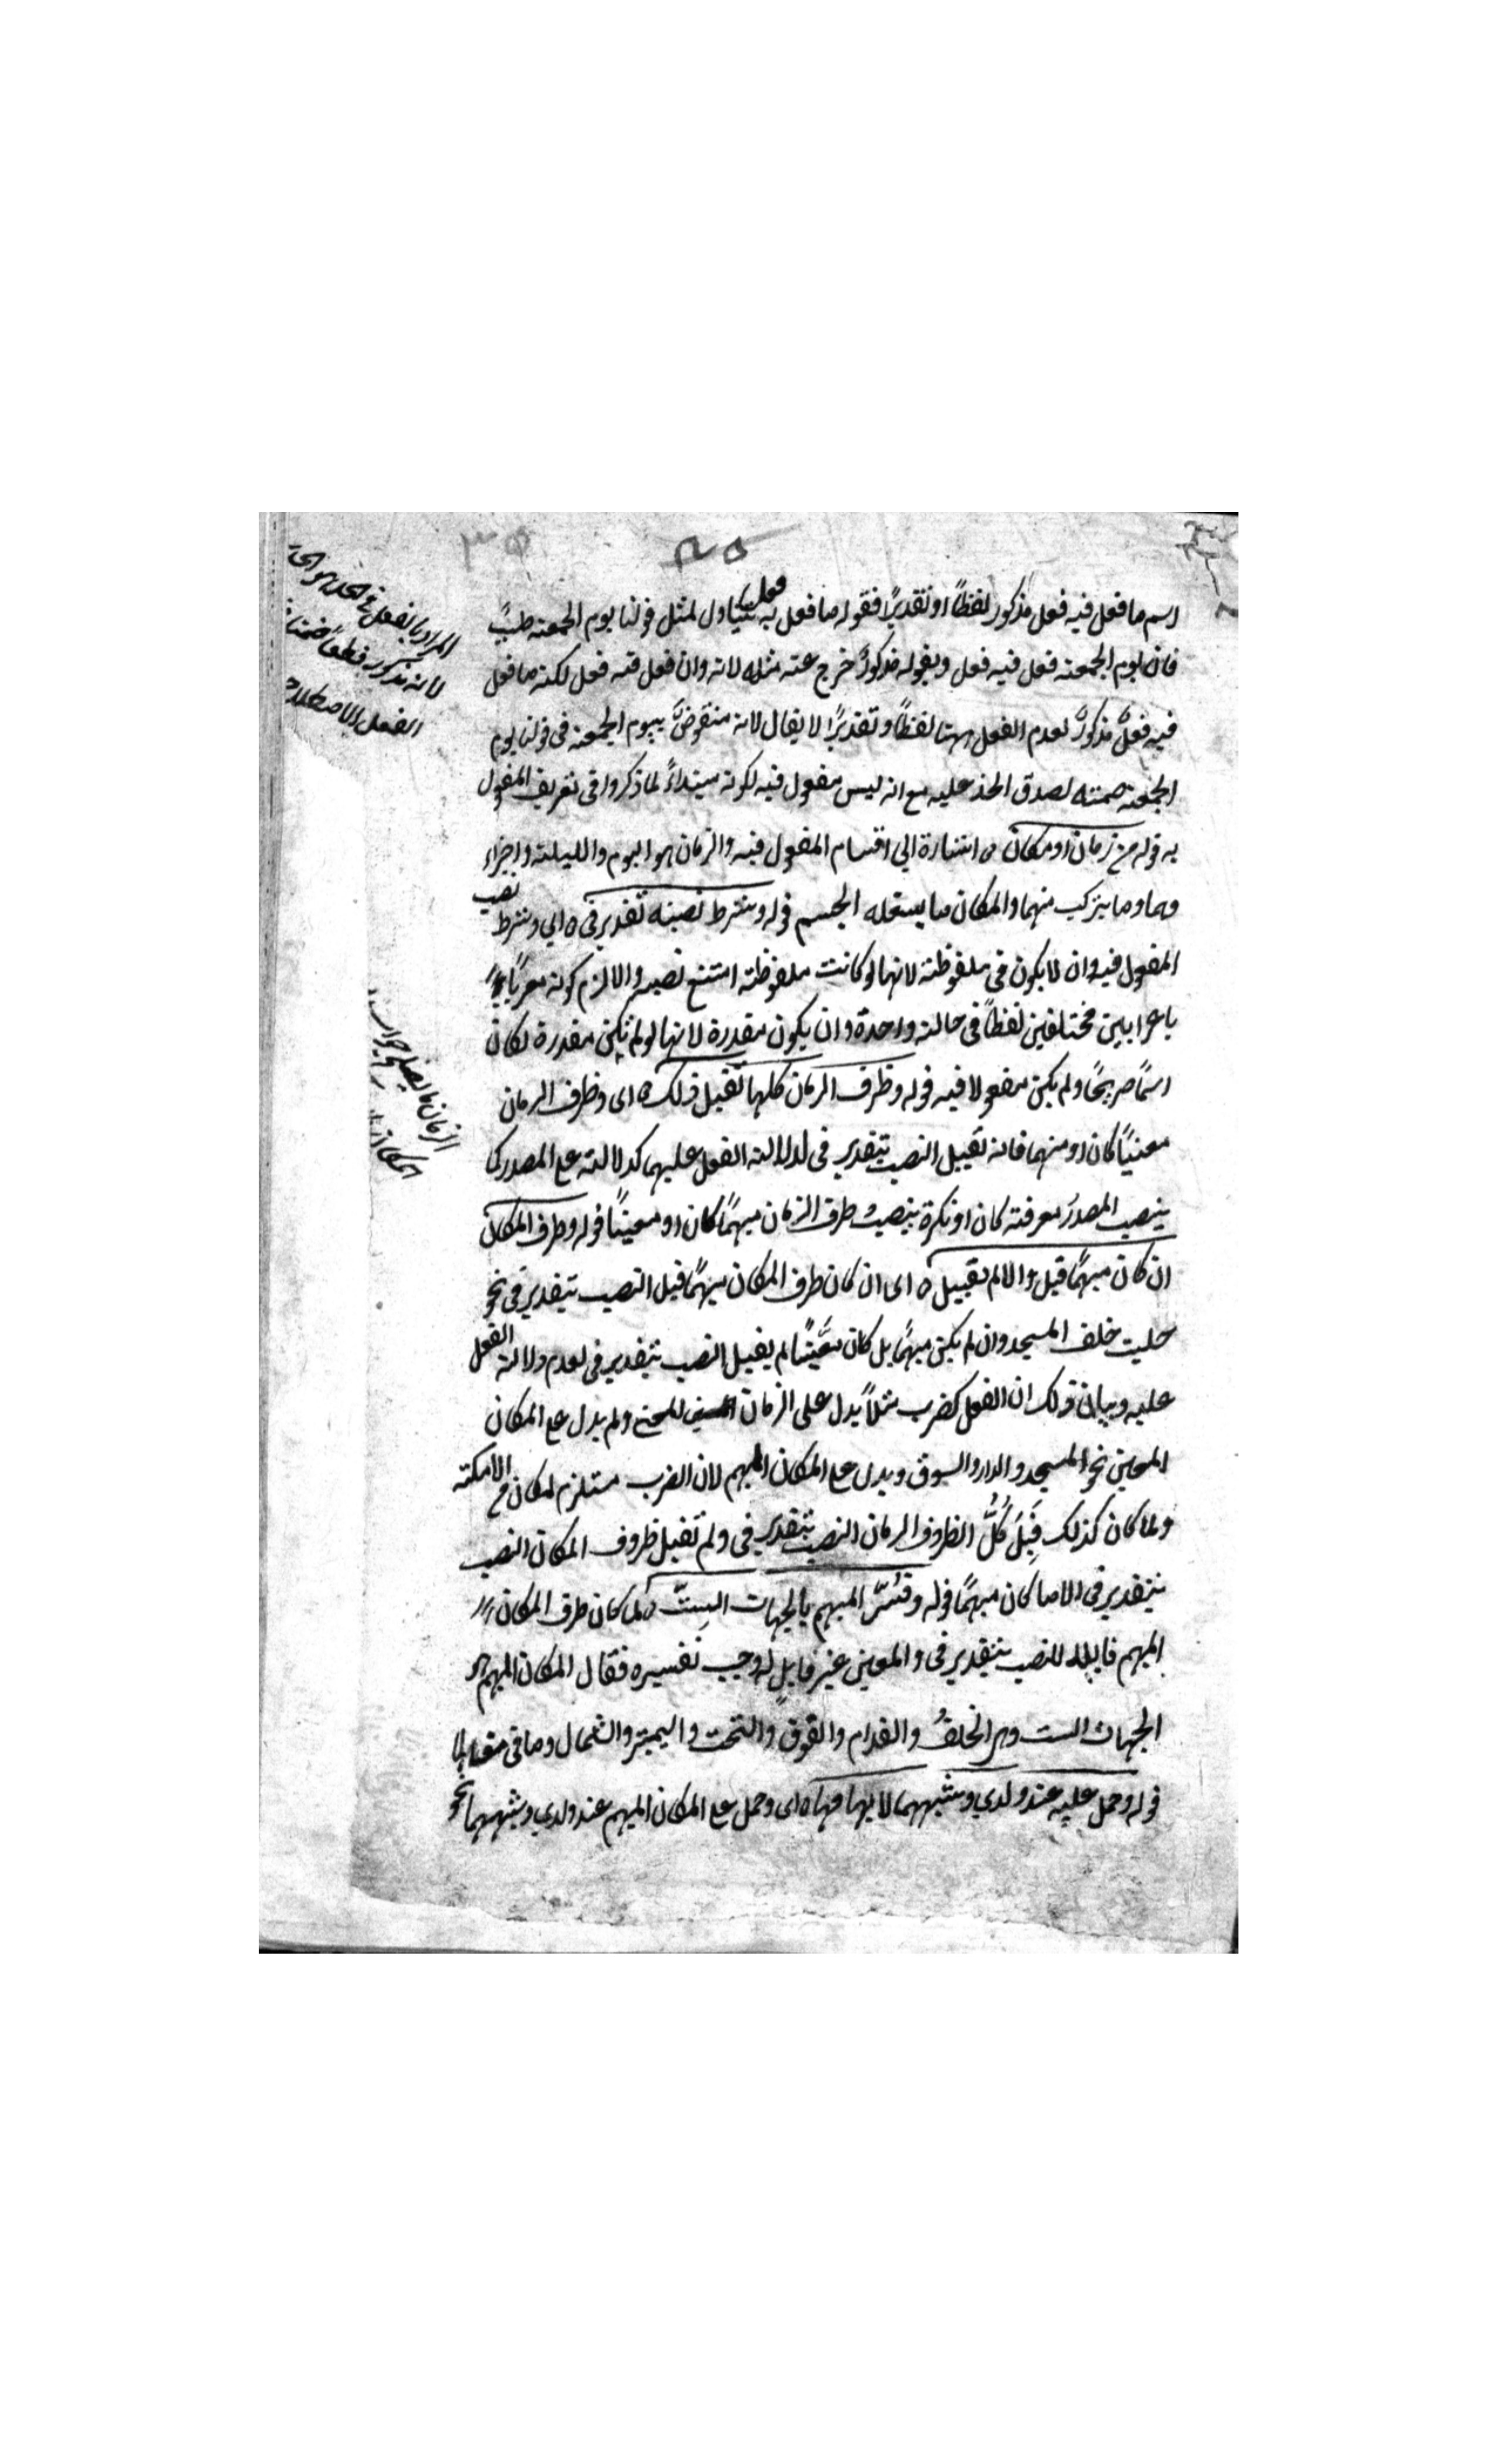 ٣٥
اسم ما فعل فيه فعل مذكور لفظًا او تقديرًا فقوله ما فعل به فعل يتناول لمثل قولنا يوم الجمعة طيب
فان يوم الجمعة فعل فيه فعل وبقوله مذكورٌ خرج عنه مثله لانه وان فعل فيه فعل لكنه ما فعل
فيه فعلٌ مذكورٌ لعدم الفعل ههنا لفظًا وتقديرًا لا يقال لانه منقوضٌ بيوم الجمعة في قولنا يوم
الجمعة صمته لصدق الحد عليه مع انه ليس مفعول فيه لكونه مبتداءً لما ذكروا في تعريف المفعول
به قوله من زمان او مكان ه اشارة الي اقسام المفعول فيه والزمان هو اليوم والليلة واجزاء
هما وما يتركب منهما والمكان ما يستحله الجسم قوله وشرط نصبه تقدير في ه اي وشرط نصب
المفعول فيه ان لا يكون في ملفوظة لانها لو كانت ملفوظة امتنع نصبه والا لزم كونه معربًا
باعرابين مختلفين لفظًا في حالة واحدة وان يكون مقدرة لانها لو لم تكن مقدرة لكان
اسمًا صريحًا ولم يكن مفعولا فيه قوله وظرف الزمان كلها تقبل ذلك ه اى وظرف الزمان
معنيًا كان او مبهما فانه تقبل النصب بتقدير فى لدلالة الفعل عليهما كدلالته على المصدر كما
ينصب المصدرُ معرفة كان او نكرة ينصب ظرف الزمان مبهمًا كان او معينًا قوله وظرف المكان
ان كان مبهمًا قبل والا لم يقبل ه اى ان كان ظرف المكان مبهمًا قبل النصب بتقدير فى نحو
جلست خلف المسجد وان لم يكن مبهمًا بل كان معينًا لم يقبل النصب بتقدير فى لعدم دلالة الفعل
عليه وبيان ذلك ان الفعل كضرب مثلاً يدل على الزمان المعين ولم يدل على المكان
المعين نحو المسجد والدار والسوق ويدل على المكان المبهم لان الضرب مستلزم لمكان من الامكنة
ولما كان كذلك قَبِلَ كُلُّ الظروف الزمان النصب بتقدير فى ولم تقبل ظروف المكان النصب
بتقدير فى الا ما كان مبهمًا قوله وفُسّر المبهم بالجهات الستّ ه لما كان ظرف المكان
المبهم قابلا للنصب بتقدير فى والمعين غير قابلٍ له وجب تفسيره فقال المكان المبهم هو
الجهات الست وهى الخلفُ والقدام والفوق والتحت واليمين والشمال وما في مقابلها
قوله وحمل عليه عند ولدي وشبههما لابهامهما ه اى وحمل على المكان المبهم عند ولدي وشبههما نحو
المراد بالفعل
لانه مذكور قطعًا ضمنا
الفعل الاصطلاحي
الزمان ما يصلح جواب
المكان